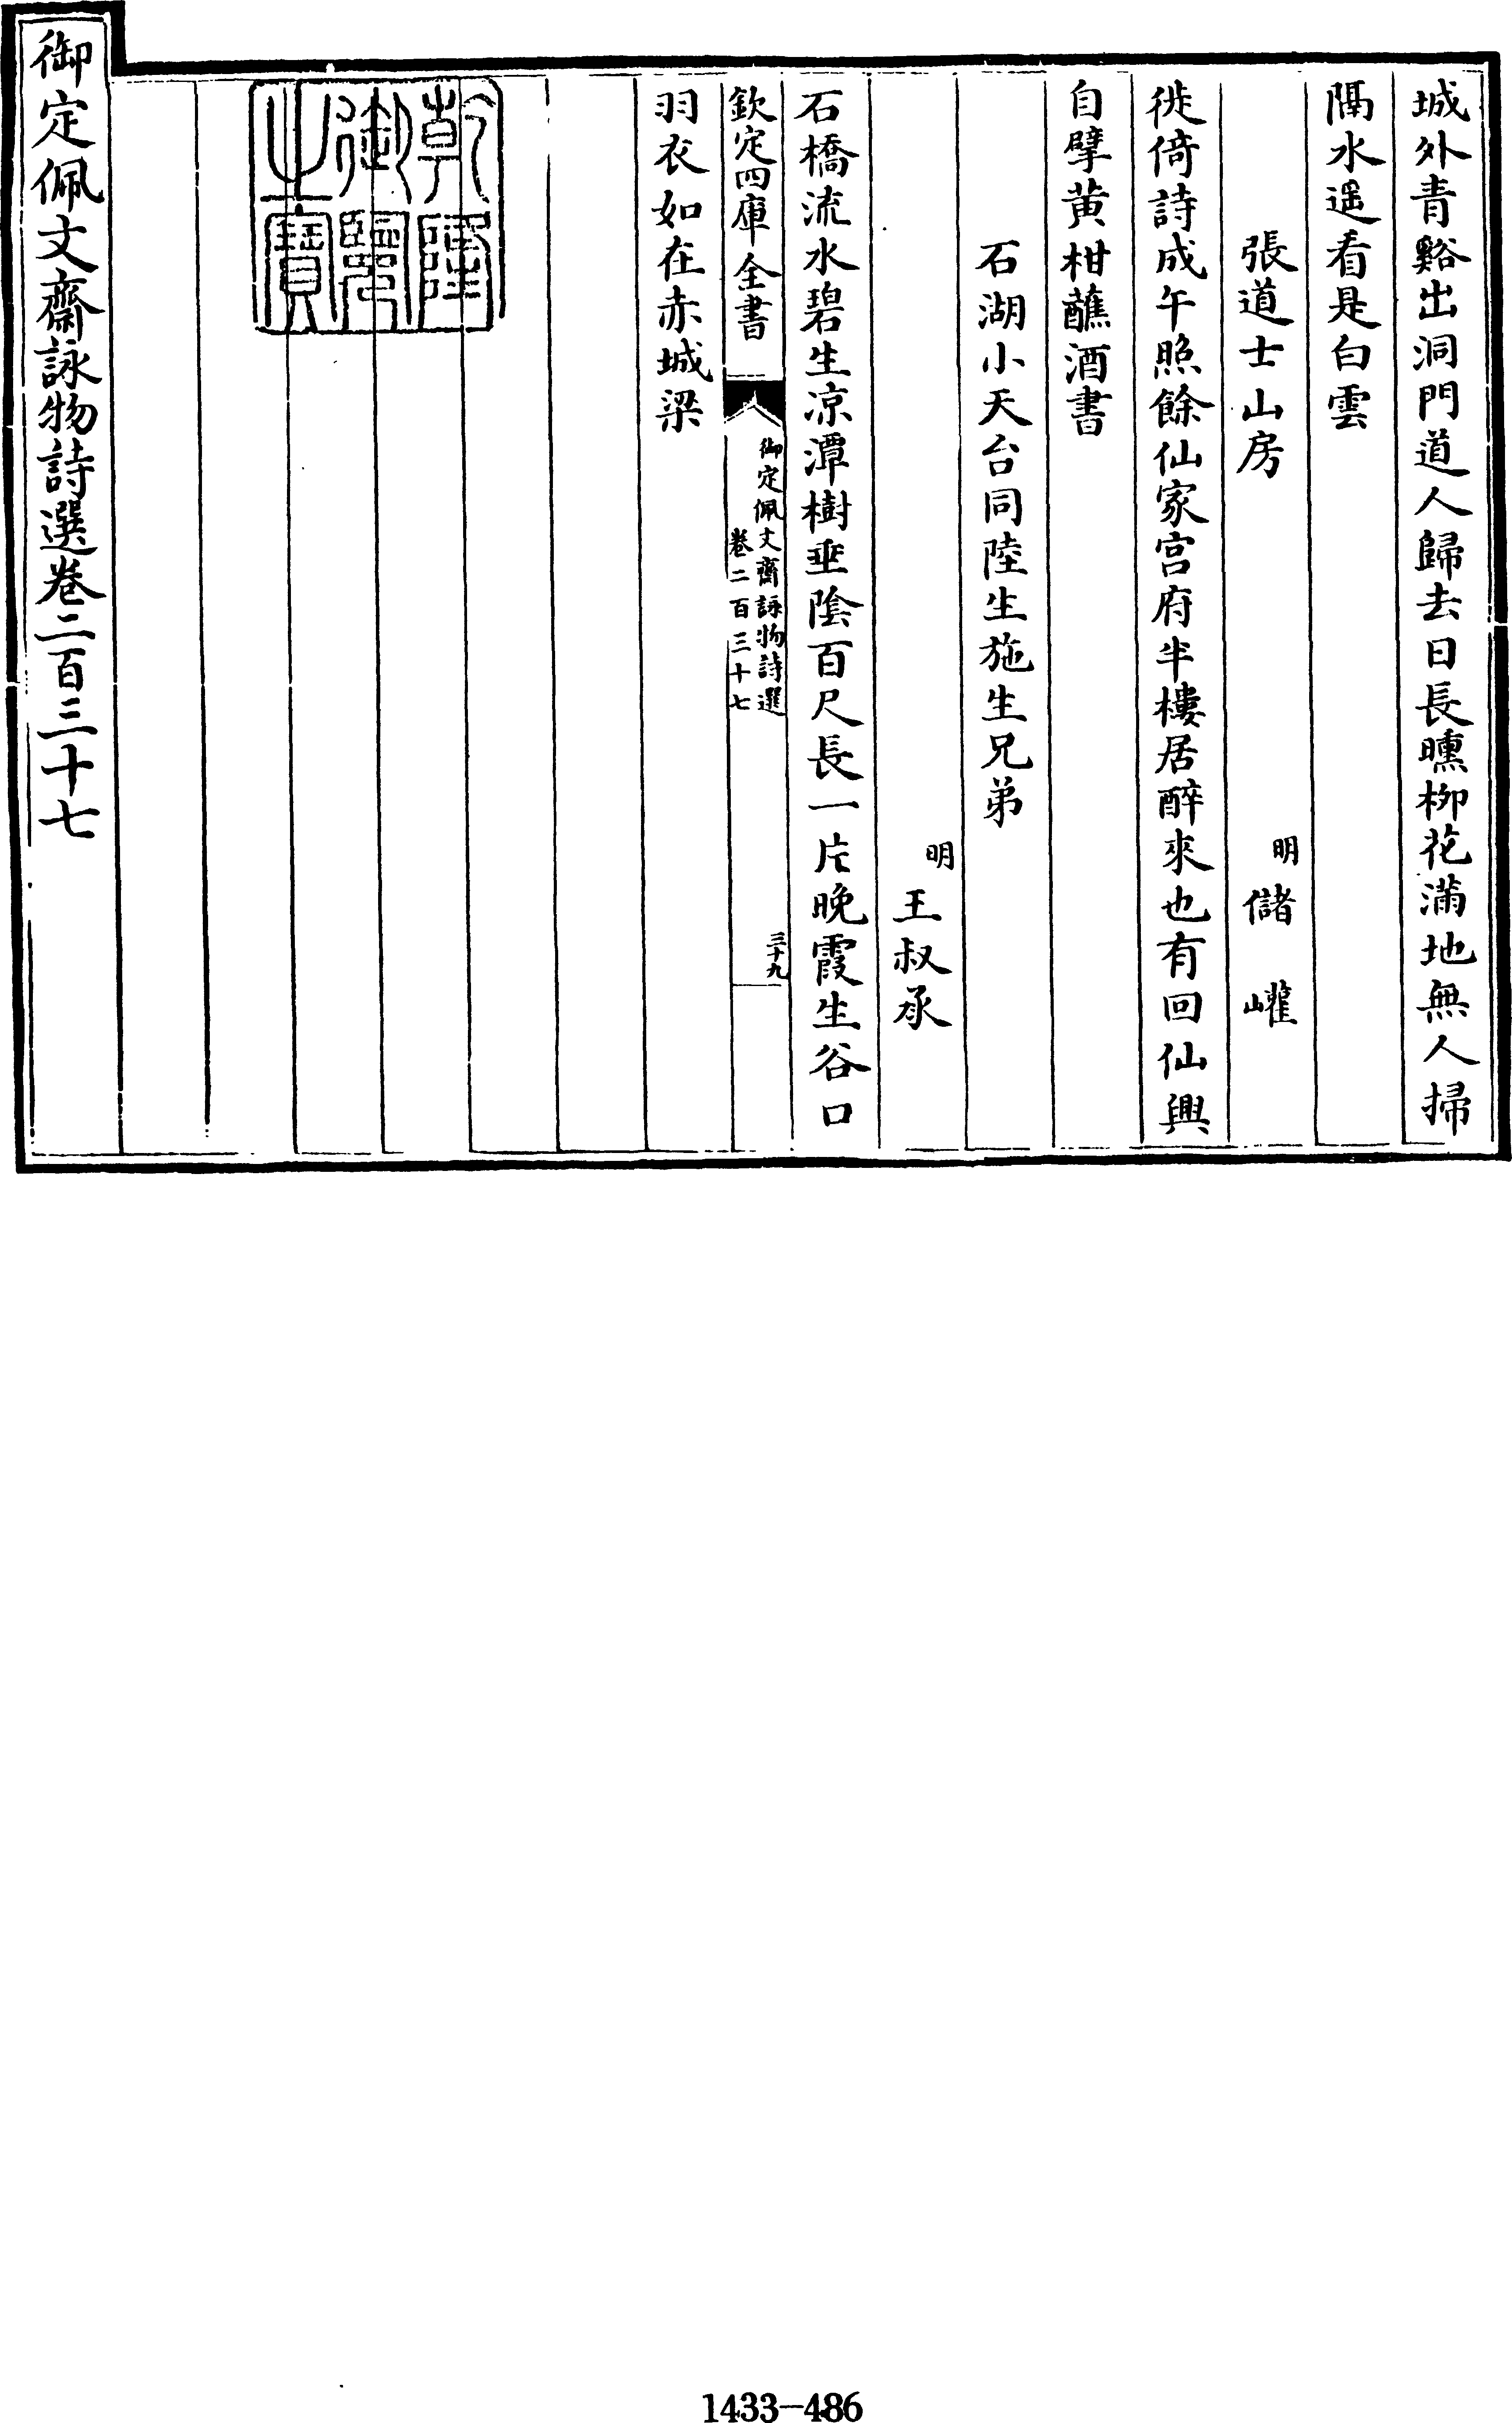 城外青谿出洞門道人歸去日長曛栁花滿地無人掃
隔水遥看是白雲
張道士山房
明
儲　巏
徙倚詩成午照餘仙家宫府半樓居醉來也有回仙興
自擘黄柑蘸酒書
石湖小天台同陸生施生兄弟
明
王叔承
石橋流水碧生凉潭樹垂陰百尺長一片晚霞生谷口
欽定四庫全書
御定佩文齋詠物詩選
卷二百三十七
三十九
羽衣如在赤城梁
乾隆
御覽
之寶
御定佩文齋詠物詩選卷二百三十七
1433-486